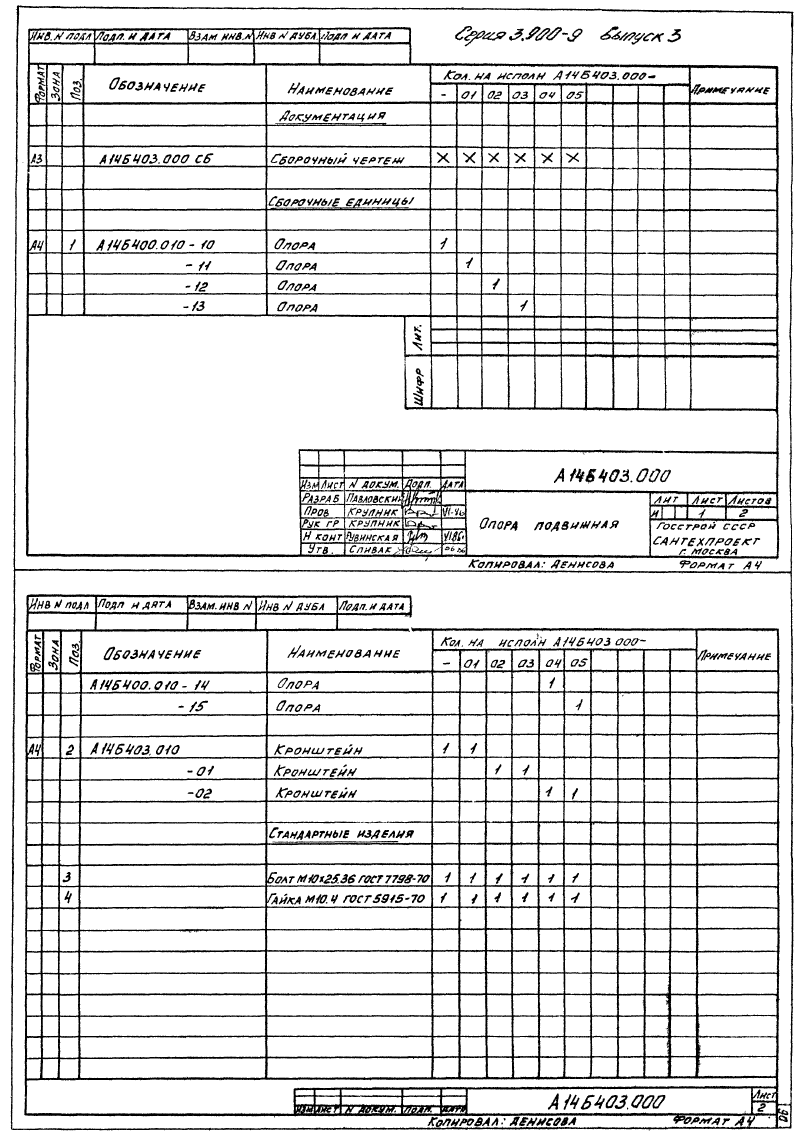 Серия 3.900-9 Выпуск 3
Инв. N подл Подп. и дата Взам инв. N Инв N дубл. Подп и дата
Формат Зона Поз. Обозначение Наименование Кол. на исполн А14Б403.000- Примечание
- 01 02 03 04 05
Документация
А3 А14Б403.000 СБ Сборочный чертеж X X X X X X
Сборочные единицы
А4 1 А14Б400.010 - 10 Опора 1
- 11 Опора 1
- 12 Опора 1
- 13 Опора 1
Лит.
Шифр
А14Б403.000
Изм Лист N докум. Подп. Дата
Разраб Павловский
Пров Крупник
Рук гр Крупник
Н конт Рувинская
Утв. Спивак
Опора подвижная
Лит Лист Листов
И 1 2
Госстрой СССР
Сантехпроект
г. Москва
Копировал: Денисова Формат А4
Инв N подл Подп и дата Взам. инв N Инв N дубл Подп. и дата
Формат Зона Поз. Обозначение Наименование Кол. на исполн А14Б403.000- Примечание
- 01 02 03 04 05
А14Б400.010 - 14 Опора 1
- 15 Опора 1
А4 2 А14Б403.010 Кронштейн 1 1
-01 Кронштейн 1 1
-02 Кронштейн 1 1
Стандартные изделия
3 Болт М10×25.36 ГОСТ 7798-70 1 1 1 1 1 1
4 Гайка М10.4 ГОСТ 5915-70 1 1 1 1 1 1
Изм Лист N докум. Подп. Дата
А14Б403.000
Лист
2
Копировал: Денисова Формат А4